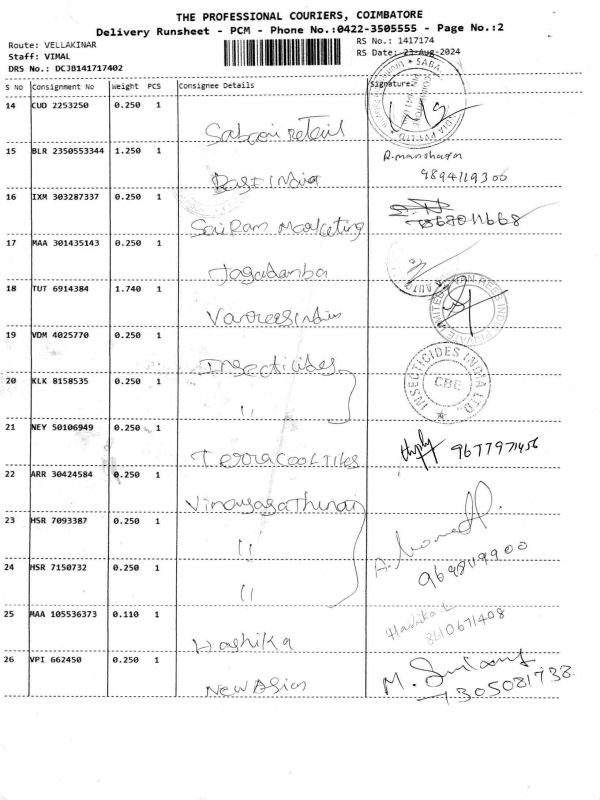 THE PROFESSIONAL COURIERS, COIMBATORE
Delivery Runsheet - PCM - Phone No.:0422-3505555 - Page No.:2
Route: VELLAKINAR RS No.: 1417174
Staff: VIMAL RS Date: 23-Aug-2024
DRS No.: DCJB141717402
S No Consignment No Weight PCS Consignee Details Signature
14 CUD 2253250 0.250 1
retail
15 BLR 2350553344 1.250 1 R.manoharan
India 9894119300
16 IXM 303287337 0.250 1
SaiRam Marketing
17 MAA 301435143 0.250 1
Jagadamba
18 TUT 6914384 1.740 1
VanreesIndia
19 VDM 4025770 0.250 1
Insecticides INSECTICIDES INDIA LTD.
20 KLK 8158535 0.250 1 CBE
"
21 NEY 50106949 0.250 1
Terracool Tiles 9677971456
22 ARR 30424584 0.250 1
Vinayaga
23 HSR 7093387 0.250 1
"
24 HSR 7150732 0.250 1
"
25 MAA 105536373 0.110 1
Hashika 8410671408
26 VPI 662450 0.250 1 M.
New Asian